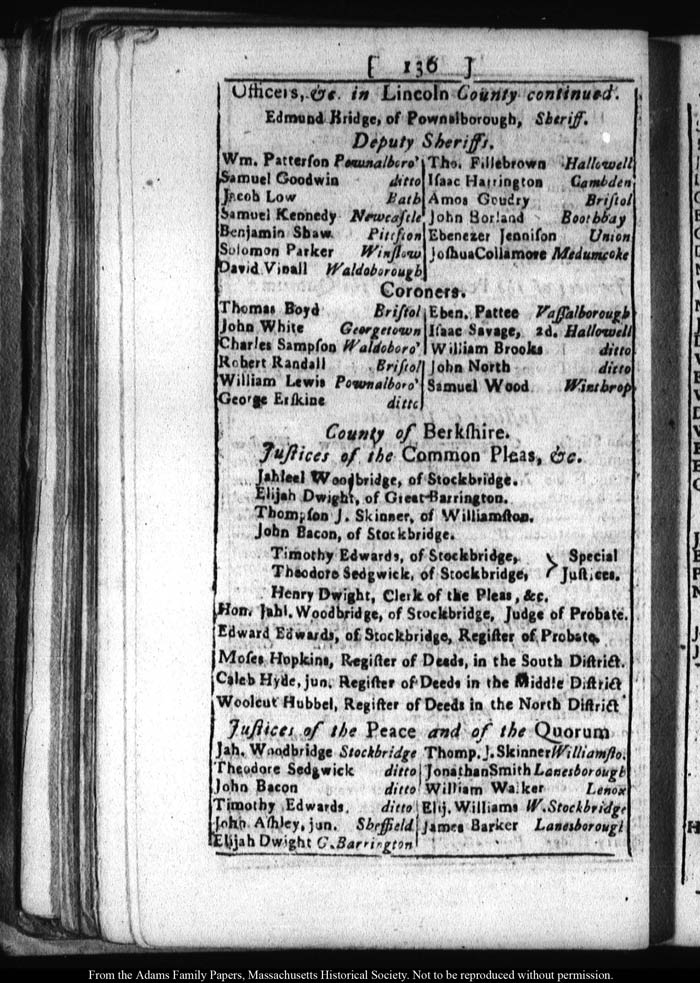 [ 136 ]
Officers, &c. in Lincoln County continued.
Edmund Bridge, of Pownalborough, Sheriff.
Deputy Sheriffs.
Wm. Patterſon Pownalboro'
Samuel Goodwin ditto
Jacob Low Bath
Samuel Kennedy Newcaſtle
Benjamin Shaw Pittſton
Solomon Parker Winſlow
David Vinall Waldoborough
Tho. Fillebrown Hallowell
Iſaac Harrington Cambden
Amos Goudry Briſtol
John Borland Boothbay
Ebenezer Jenniſon Union
Joſhua Collamore Medumcoke
Coroners.
Thomas Boyd Briſtol
John White Georgetown
Charles Sampſon Waldoboro'
Robert Randall Briſtol
William Lewis Pownalboro'
George Erſkine ditto
Eben. Pattee Vaſſalborough
Iſaac Savage, 2d. Hallowell
William Brooks ditto
John North ditto
Samuel Wood Winthrop
County of Berkſhire.
Juſtices of the Common Pleas, &c.
Jahleel Woodbridge, of Stockbridge.
Elijah Dwight, of Great-Barrington.
Thompſon J. Skinner, of Williamſton.
John Bacon, of Stockbridge.
Timothy Edwards, of Stockbridge, } Special
Theodore Sedgwick, of Stockbridge, } Juſtices.
Henry Dwight, Clerk of the Pleas, &c.
Hon. Jahl. Woodbridge, of Stockbridge, Judge of Probate.
Edward Edwards, of Stockbridge, Regiſter of Probate.
Moſes Hopkins, Regiſter of Deeds, in the South Diſtrict.
Caleb Hyde, jun. Regiſter of Deeds in the Middle Diſtrict
Woolcut Hubbel, Regiſter of Deeds in the North Diſtrict
Juſtices of the Peace and of the Quorum
Jah. Woodbridge Stockbridge
Theodore Sedgwick ditto
John Bacon ditto
Timothy Edwards. ditto
John Aſhley, jun. Sheffield
Elijah Dwight G. Barrington
Thomp. J. Skinner Williamſto.
Jonathan Smith Lanesborough
William Walker Lenox
Elij. Williams W. Stockbridge
James Barker Lanesborough
From the Adams Family Papers, Massachusetts Historical Society. Not to be reproduced without permission.